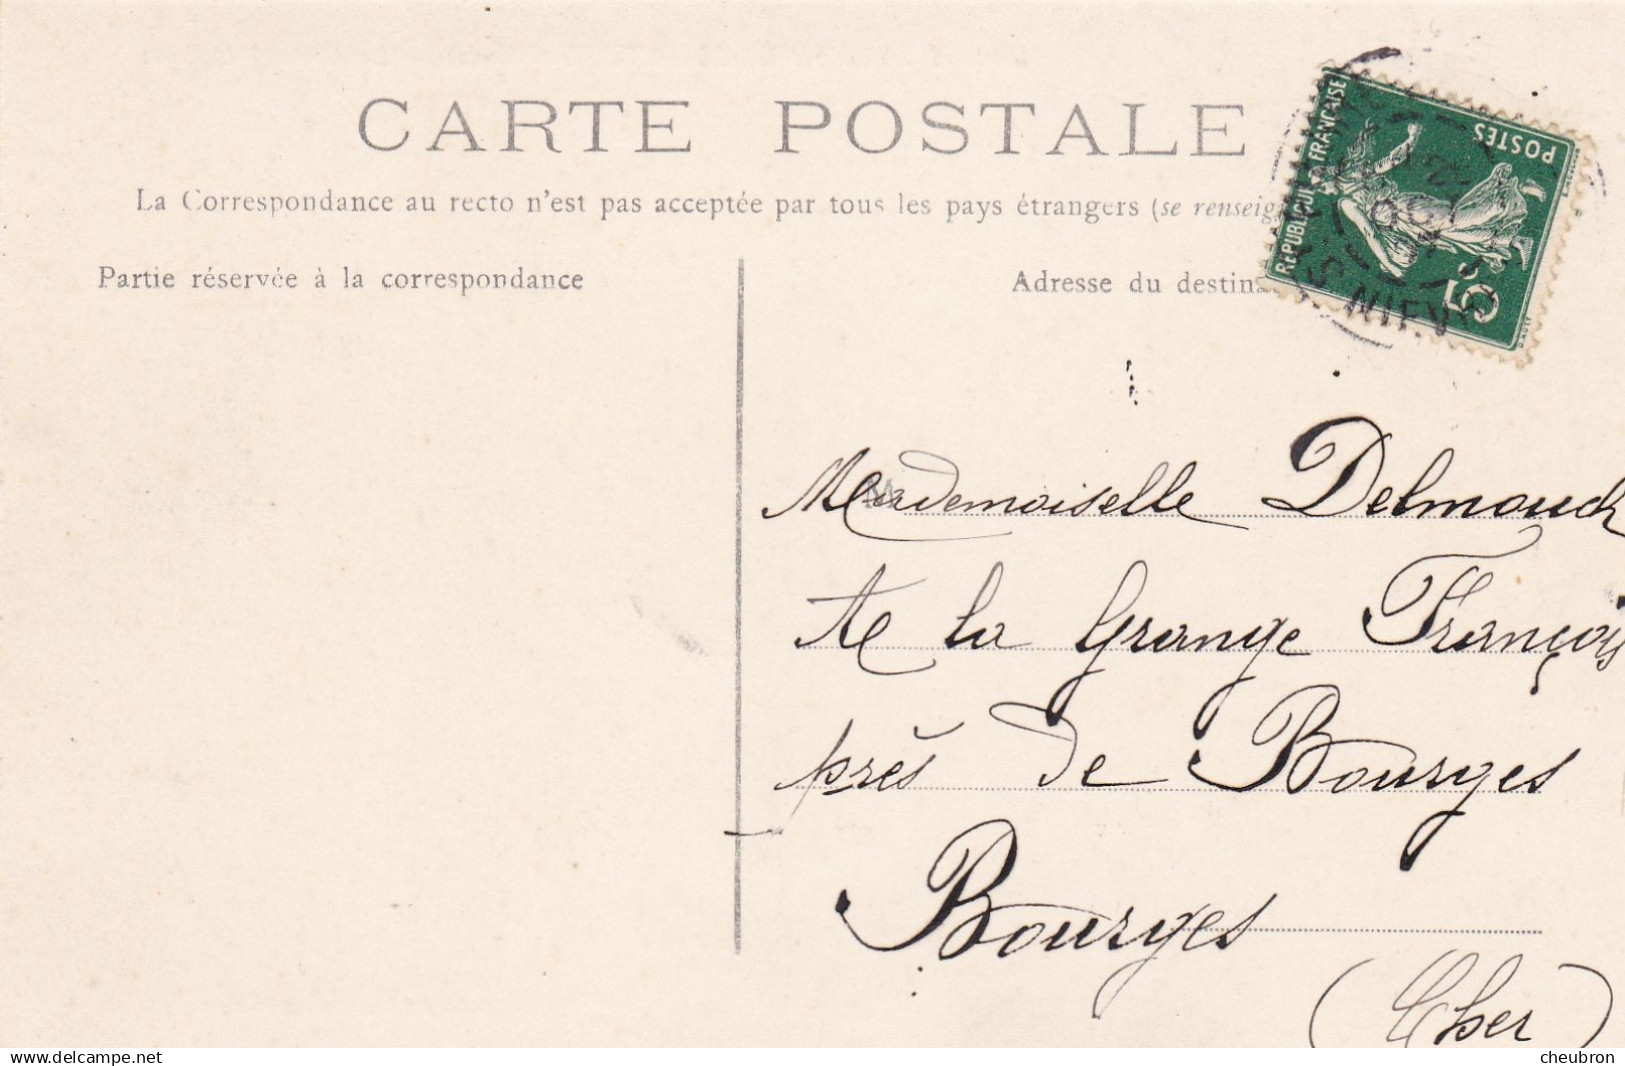 CARTE POSTALE
La Correspondance au recto n'est pas acceptée par tous les pays étrangers (se renseig
Partie réservée à la correspondance
Adresse du destin
REPUBLIQUE FRANÇAISE
POSTES
5
NIEVRE
Mademoiselle Delmouch
de la Grange François
près de Bourges
Bourges
(Cher)
www.delcampe.net
cheubron